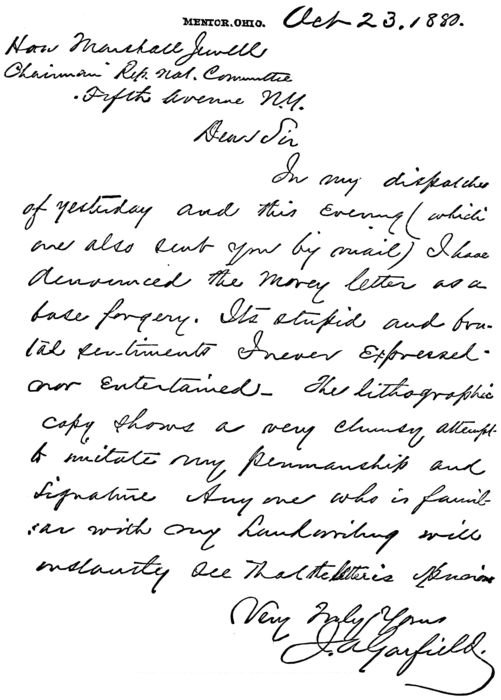 MENTOR, OHIO. Oct 23, 1880.
Hon Marshall Jewell
Chairman Rep. Nat. Committee
Fifth Avenue N.Y.
Dear Sir
In my dispatches
of yesterday and this evening (which
are also sent you by mail) I have
denounced the Morey letter as a
base forgery. Its stupid and bru-
tal sentiments I never expressed
nor entertained_ The lithographic
copy shows a very clumsy attempt
to imitate my penmanship and
signature Any one who is famil-
iar with my handwriting will
instantly see that the letter is spurious
Very Truly Yours
J. A. Garfield.